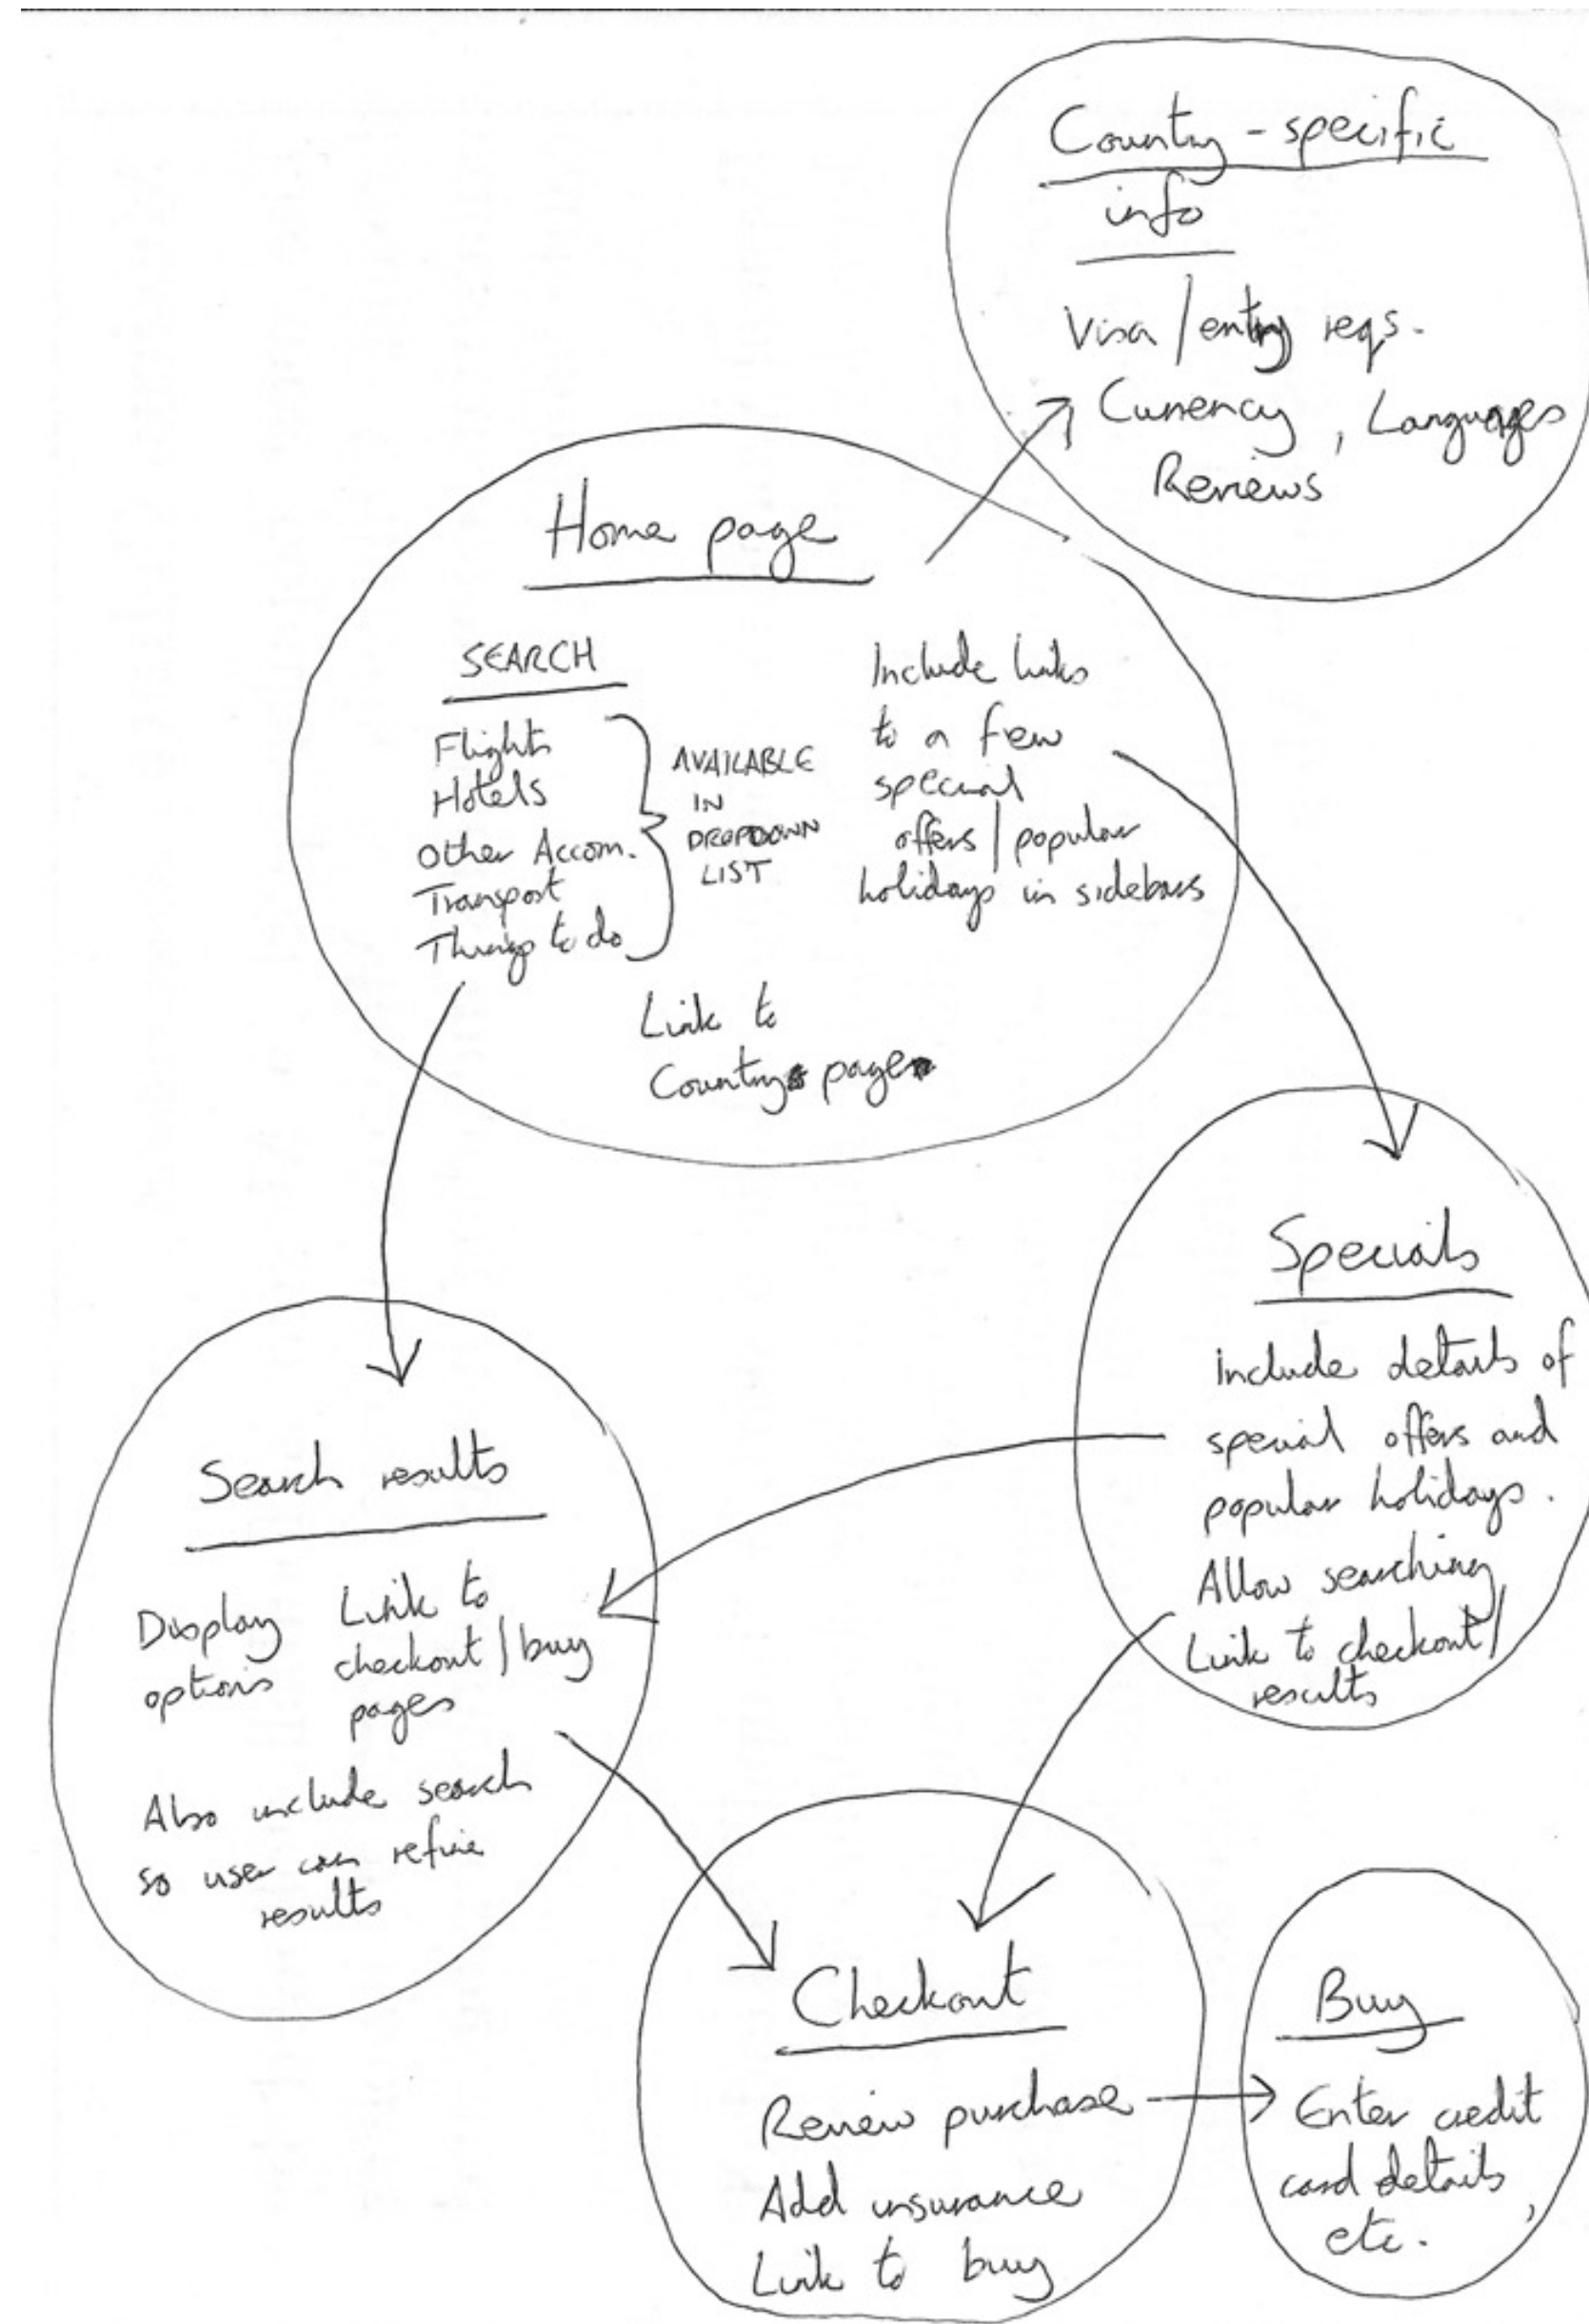 Country - specific
info
Visa / entry reqs.
Currency, Languages
Reviews
Home page
SEARCH
Flights
Hotels
Other Accom.
Transport
Things to do
AVAILABLE
IN
DROPDOWN
LIST
Include links
to a few
special
offers / popular
holidays in sidebars
Link to
Country page
Specials
Include details of
special offers and
popular holidays.
Allow searching
Link to checkout /
results
Search results
Display
options
Link to
checkout / buy
pages
Also include search
so user can refine
results
Checkout
Review purchase
Add insurance
Link to buy
Buy
Enter credit
card details,
etc.